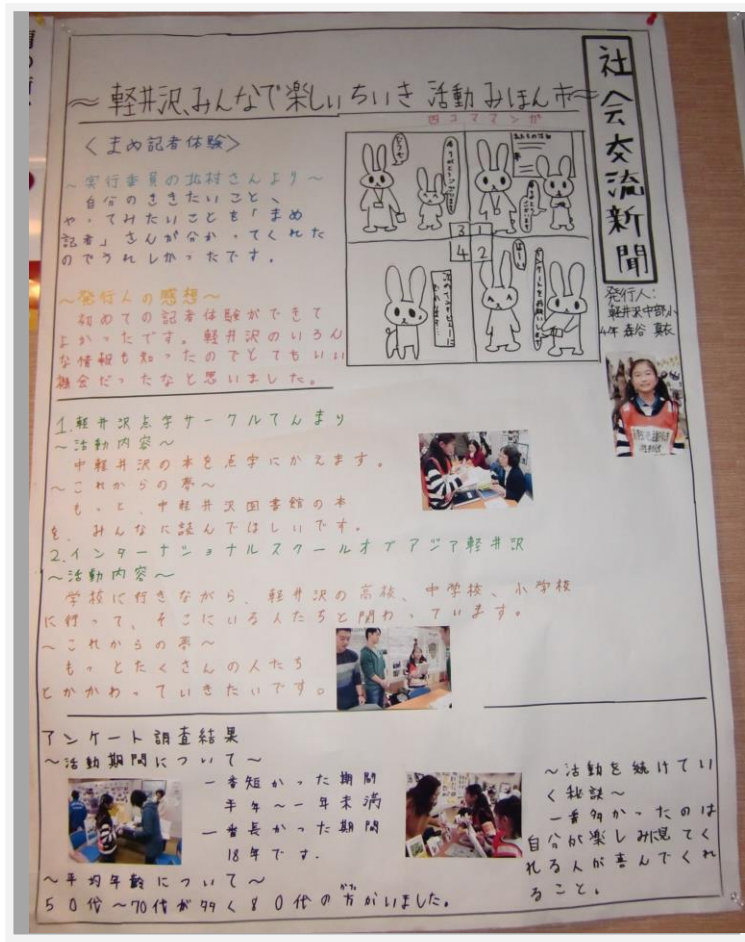 社会交流新聞
発行人:
軽井沢中部小
4年 森谷 真衣
～軽井沢、みんなで楽しいちいき 活動 みほん市～
四コママンガ
1
2
3
4
はーい
どうも
〈まめ記者体験〉
～実行委員の北村さんより～
自分のききたいこと、
やってみたいことを「まめ
記者」さんが分かってくれた
のでうれしかったです。
～発行人の感想～
初めての記者体験ができて
よかったです。軽井沢のいろん
な情報も知ったのでとてもいい
機会だったなと思いました。
1.軽井沢点字サークルてんまり
～活動内容～
中軽井沢の本を点字にかえます。
～これからの夢～
もっと、中軽井沢図書館の本
を、みんなに読んでほしいです。
2.インターナショナルスクールオブアジア軽井沢
～活動内容～
学校に行きながら、軽井沢の高校、中学校、小学校
に行って、そこにいる人たちと関わっています。
～これからの夢～
もっとたくさんの人たち
とかかわっていきたいです。
アンケート調査結果
～活動期間について～
一番短かった期間
半年～一年未満
一番長かった期間
18年です.
～平均年齢について～
50代～70代が多く80代の方がいました。
かた
～活動を続けてい
く秘訣～
一番多かったのは
自分が楽しみ見てく
れる人が喜んでくれ
ること。